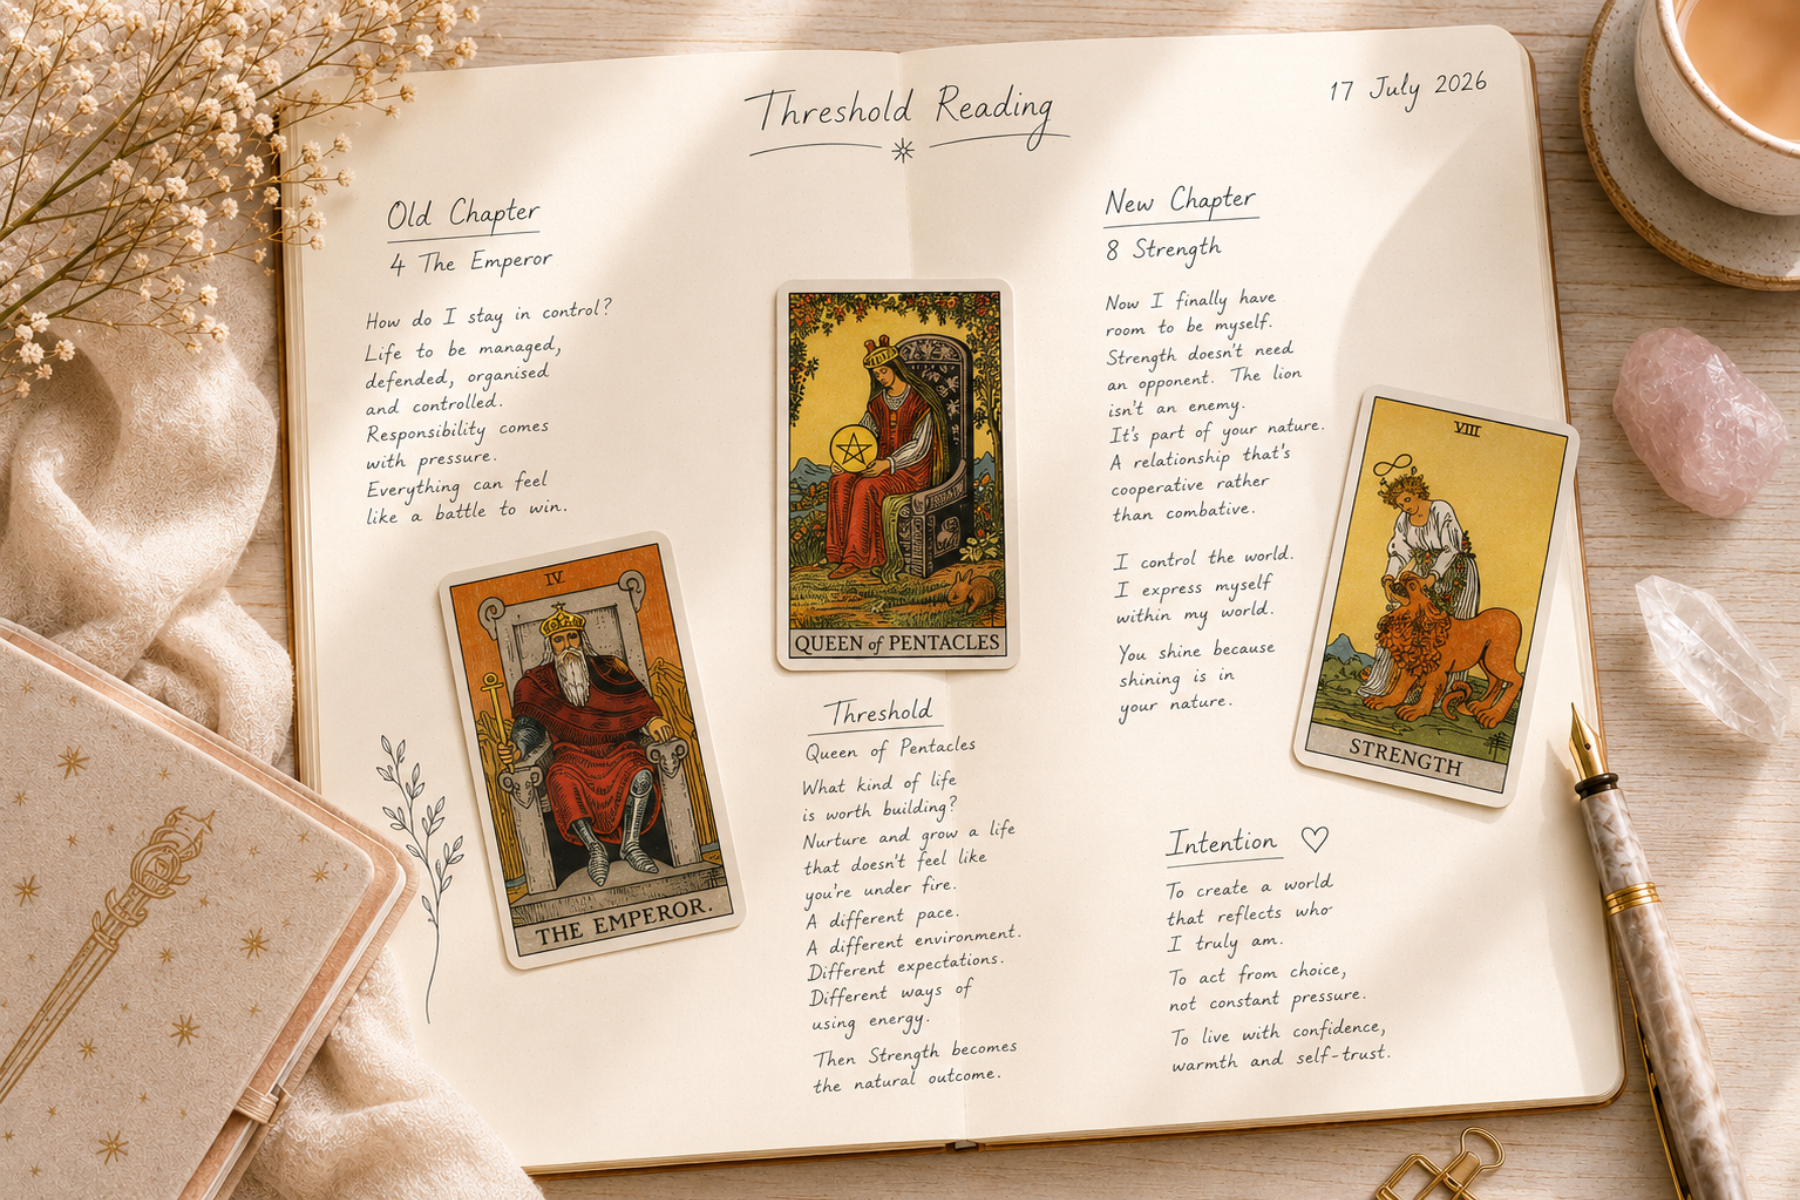 Threshold Reading
17 July 2026
Old Chapter
4 The Emperor
How do I stay in control?
Life to be managed,
defended, organised
and controlled.
Responsibility comes
with pressure.
Everything can feel
like a battle to win.
IV
THE EMPEROR.
QUEEN of PENTACLES
Threshold
Queen of Pentacles
What kind of life
is worth building?
Nurture and grow a life
that doesn't feel like
you're under fire.
A different pace.
A different environment.
Different expectations.
Different ways of
using energy.
Then Strength becomes
the natural outcome.
New Chapter
8 Strength
Now I finally have
room to be myself.
Strength doesn't need
an opponent. The lion
isn't an enemy.
It's part of your nature.
A relationship that's
cooperative rather
than combative.
I control the world.
I express myself
within my world.
You shine because
shining is in
your nature.
VIII
STRENGTH
Intention
To create a world
that reflects who
I truly am.
To act from choice,
not constant pressure.
To live with confidence,
warmth and self-trust.